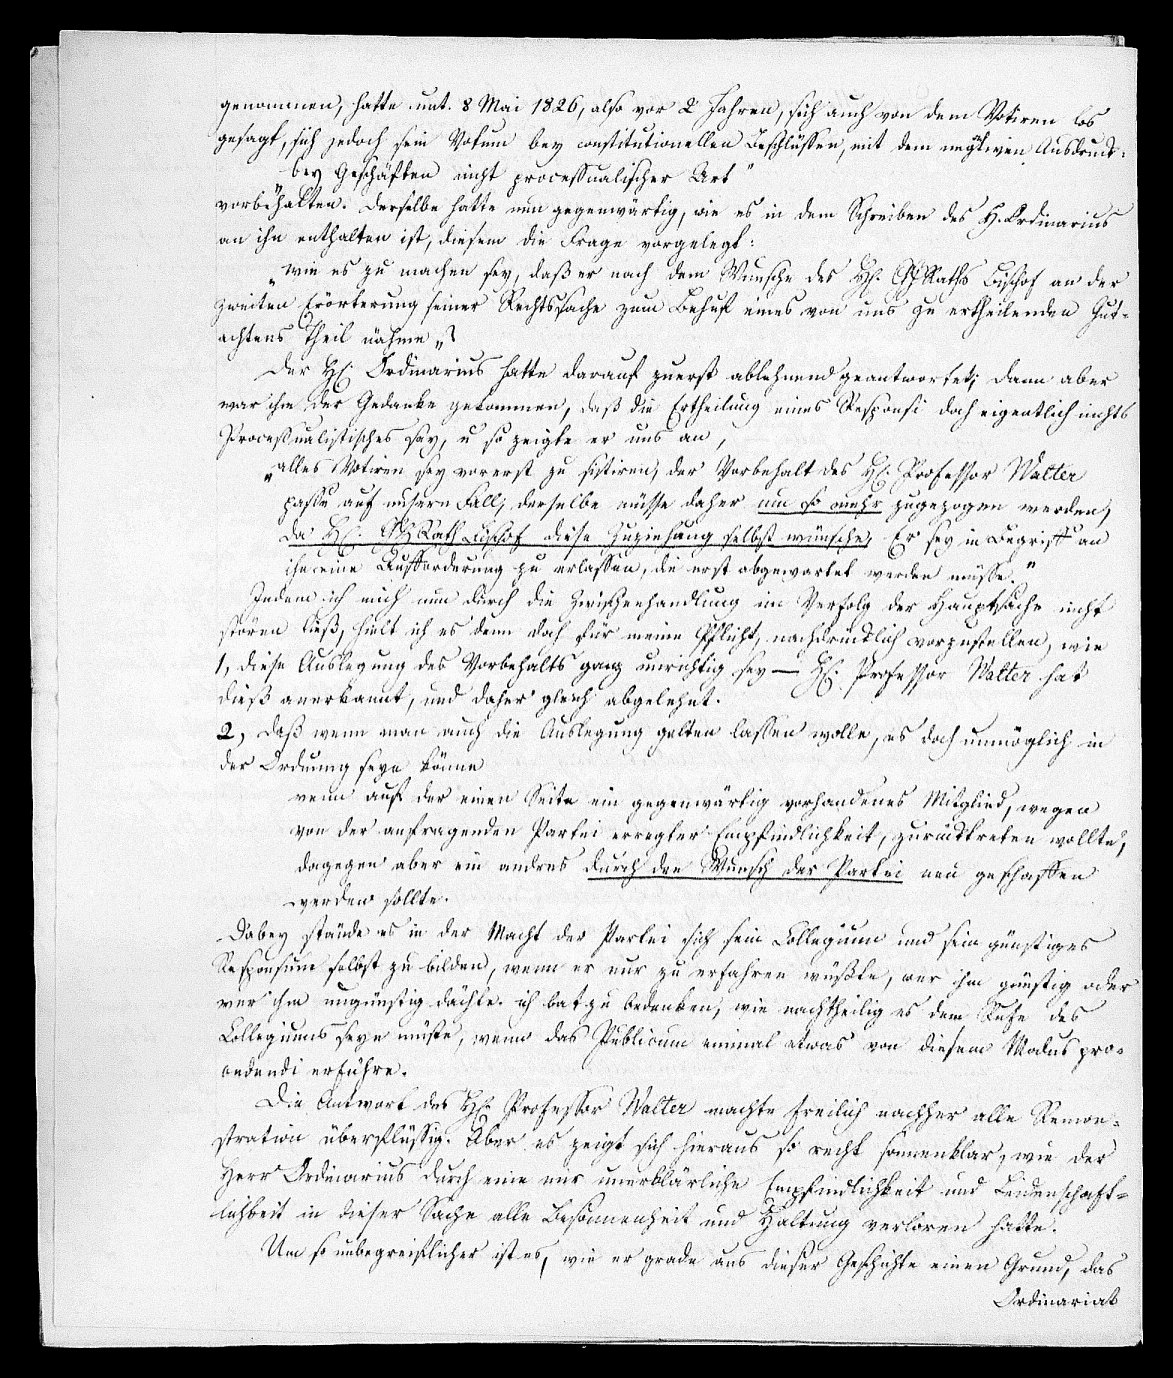 genommen, hatte unt. 8 Mai 1826, also vor 2 Jahren, sich auch von dem Votiren los
gesagt, sich jedoch sein Votum bey constitutionellen Beschlüssen, mit dem Ausdruck:
„bey Geschäften nicht processualischer Art“
vorbehalten. Derselbe hatte nun gegenwärtig, wie es in dem Schreiben des H. Ordinarius
an ihn enthalten ist, diesem die Frage vorgelegt:
„wie es zu machen sey, daß er nach dem Wunsche des H. Raths Bischof an der
zweiten Erörterung seiner Rechtssache zum Behuf eines von uns zu ertheilenden Gut-
achtens Theil nähme“?
Der H. Ordinarius hatte darauf zuerst ablehnend geantwortet; dann aber
war ihm der Gedanke gekommen, daß die Ertheilung eines Responsi doch eigentlich nichts
Processualistisches sey, u so zeigte er uns an,
„alles Votiren sey vorerst zu sistiren, der Vorbehalt des H. Professor Walter
passe auf unsern Fall, derselbe müsse daher um so mehr zugezogen werden,
da H. Rath Bischof diese Zuziehung selbst wünsche, Er sey in Begriff an
ihn eine Aufforderung zu erlassen, die erst abgewartet werden müsse.“
Indem ich mich nun durch die Zwischenhandlung im Verfolg der Hauptsache nicht
stören ließ, hielt ich es denn doch für meine Pflicht, nachdrücklich vorzustellen, wie
1, diese Auslegung des Vorbehalts ganz unrichtig sey — H. Professor Walter hat
dieß anerkannt, und daher gleich abgelehnt.
2, daß wenn man auch die Auslegung gelten lassen wolle, es doch unmöglich in
der Ordnung seyn könne
wenn auf der einen Seite ein gegenwärtig vorhandenes Mitglied, wegen
von der anfragenden Partei erregter Empfindlichkeit, zurücktreten wollte,
dagegen aber ein andres durch den Wunsch der Partei neu geschaffen
werden sollte.
Dabey stände es in der Macht der Partei sich sein Collegium und sein günstiges
Responsum selbst zu bilden, wenn er nur zu erfahren wüßte, wer ihm günstig oder
wer ihm ungünstig dächte. ich bat zu bedenken, wie nachtheilig es dem Rufe des
Collegiums seyn müßte, wenn das Publicum einmal etwas von diesem Modus pro-
cedendi erführe.
Die Antwort des H. Professor Walter machte freilich nachher alle Remon-
stration überflüssig. Aber es zeigt sich hieraus so recht sonnenklar, wie der
Herr Ordinarius durch eine mir unerklärliche Empfindlichkeit und Leidenschaft-
lichkeit in dieser Sache alle Besonnenheit und Haltung verloren hatte.
Um so unbegreiflicher ist es, wie er grade aus dieser Geschichte einen Grund, das
Ordinariat